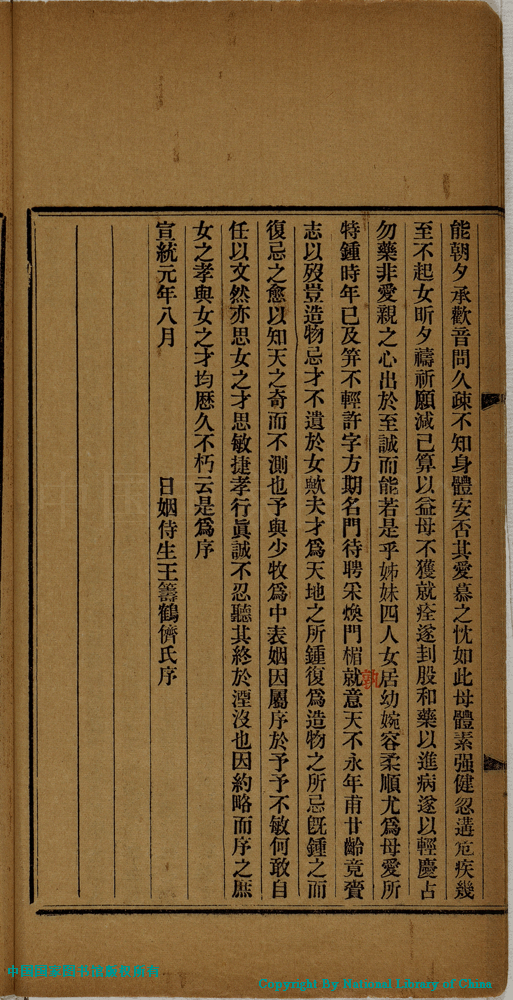 能朝夕承歡音問久疎不知身體安否其愛慕之忱如此母體素强健忽遘危疾幾
至不起女昕夕禱祈願減己算以益母不獲就痊遂刲股和藥以進病遂以輕慶占
勿藥非愛親之心出於至誠而能若是乎姊妹四人女居幼婉容柔順尤爲母愛所
特鍾時年已及笄不輕許字方期名門待聘采煥門楣就意天不永年甫廿齡竟賫
孰
志以歿豈造物忌才不遺於女歟夫才爲天地之所鍾復爲造物之所忌旣鍾之而
復忌之愈以知天之奇而不測也予與少牧爲中表姻因屬序於予予不敏何敢自
任以文然亦思女之才思敏捷孝行眞誠不忍聽其終於湮沒也因約略而序之庶
女之孝與女之才均歷久不朽云是爲序
宣統元年八月 日姻侍生王籌鶴儕氏序
Copyright By National Library of China